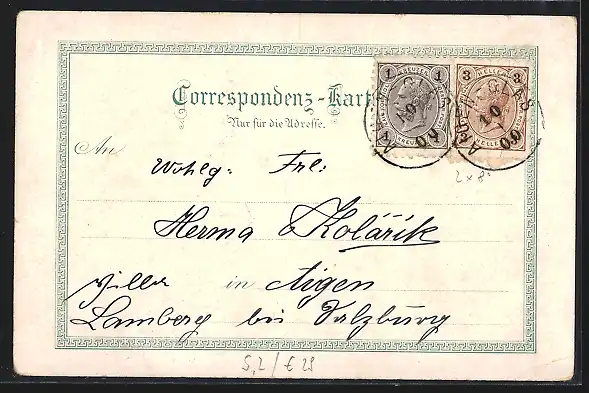 Correspondenz-Karte
Nur für die Adresse.
1 KREUZER 1
3 HELLER 3
10
00
10
00
2 x 8
An
Wohlg. Frl:
Herma Kolářik
Villa in Aigen
Lamberg bei Salzburg
5,2 / € 29